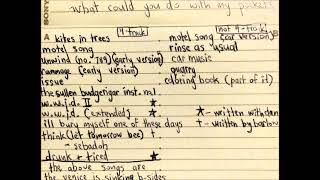 what could you do with my pockets
SONY
A
4 track
not 4-track
kites in trees
motel song
unwind (no. 789) (early version)
rummage (early version)
issue
the sullen budgerigar inst. no. 1
w.w.j.d. II
w.w.j.d. (extended) ★
ill bury myself one of these days
think (let tomorrow bee) †
- sebadoh
drunk + tired ★
the above songs are
the venice is sinking b-sides
motel song (car version)
rinse as usual
car music
quarry
coloring book (part of it)
★ - written with dan
† - written by barlow